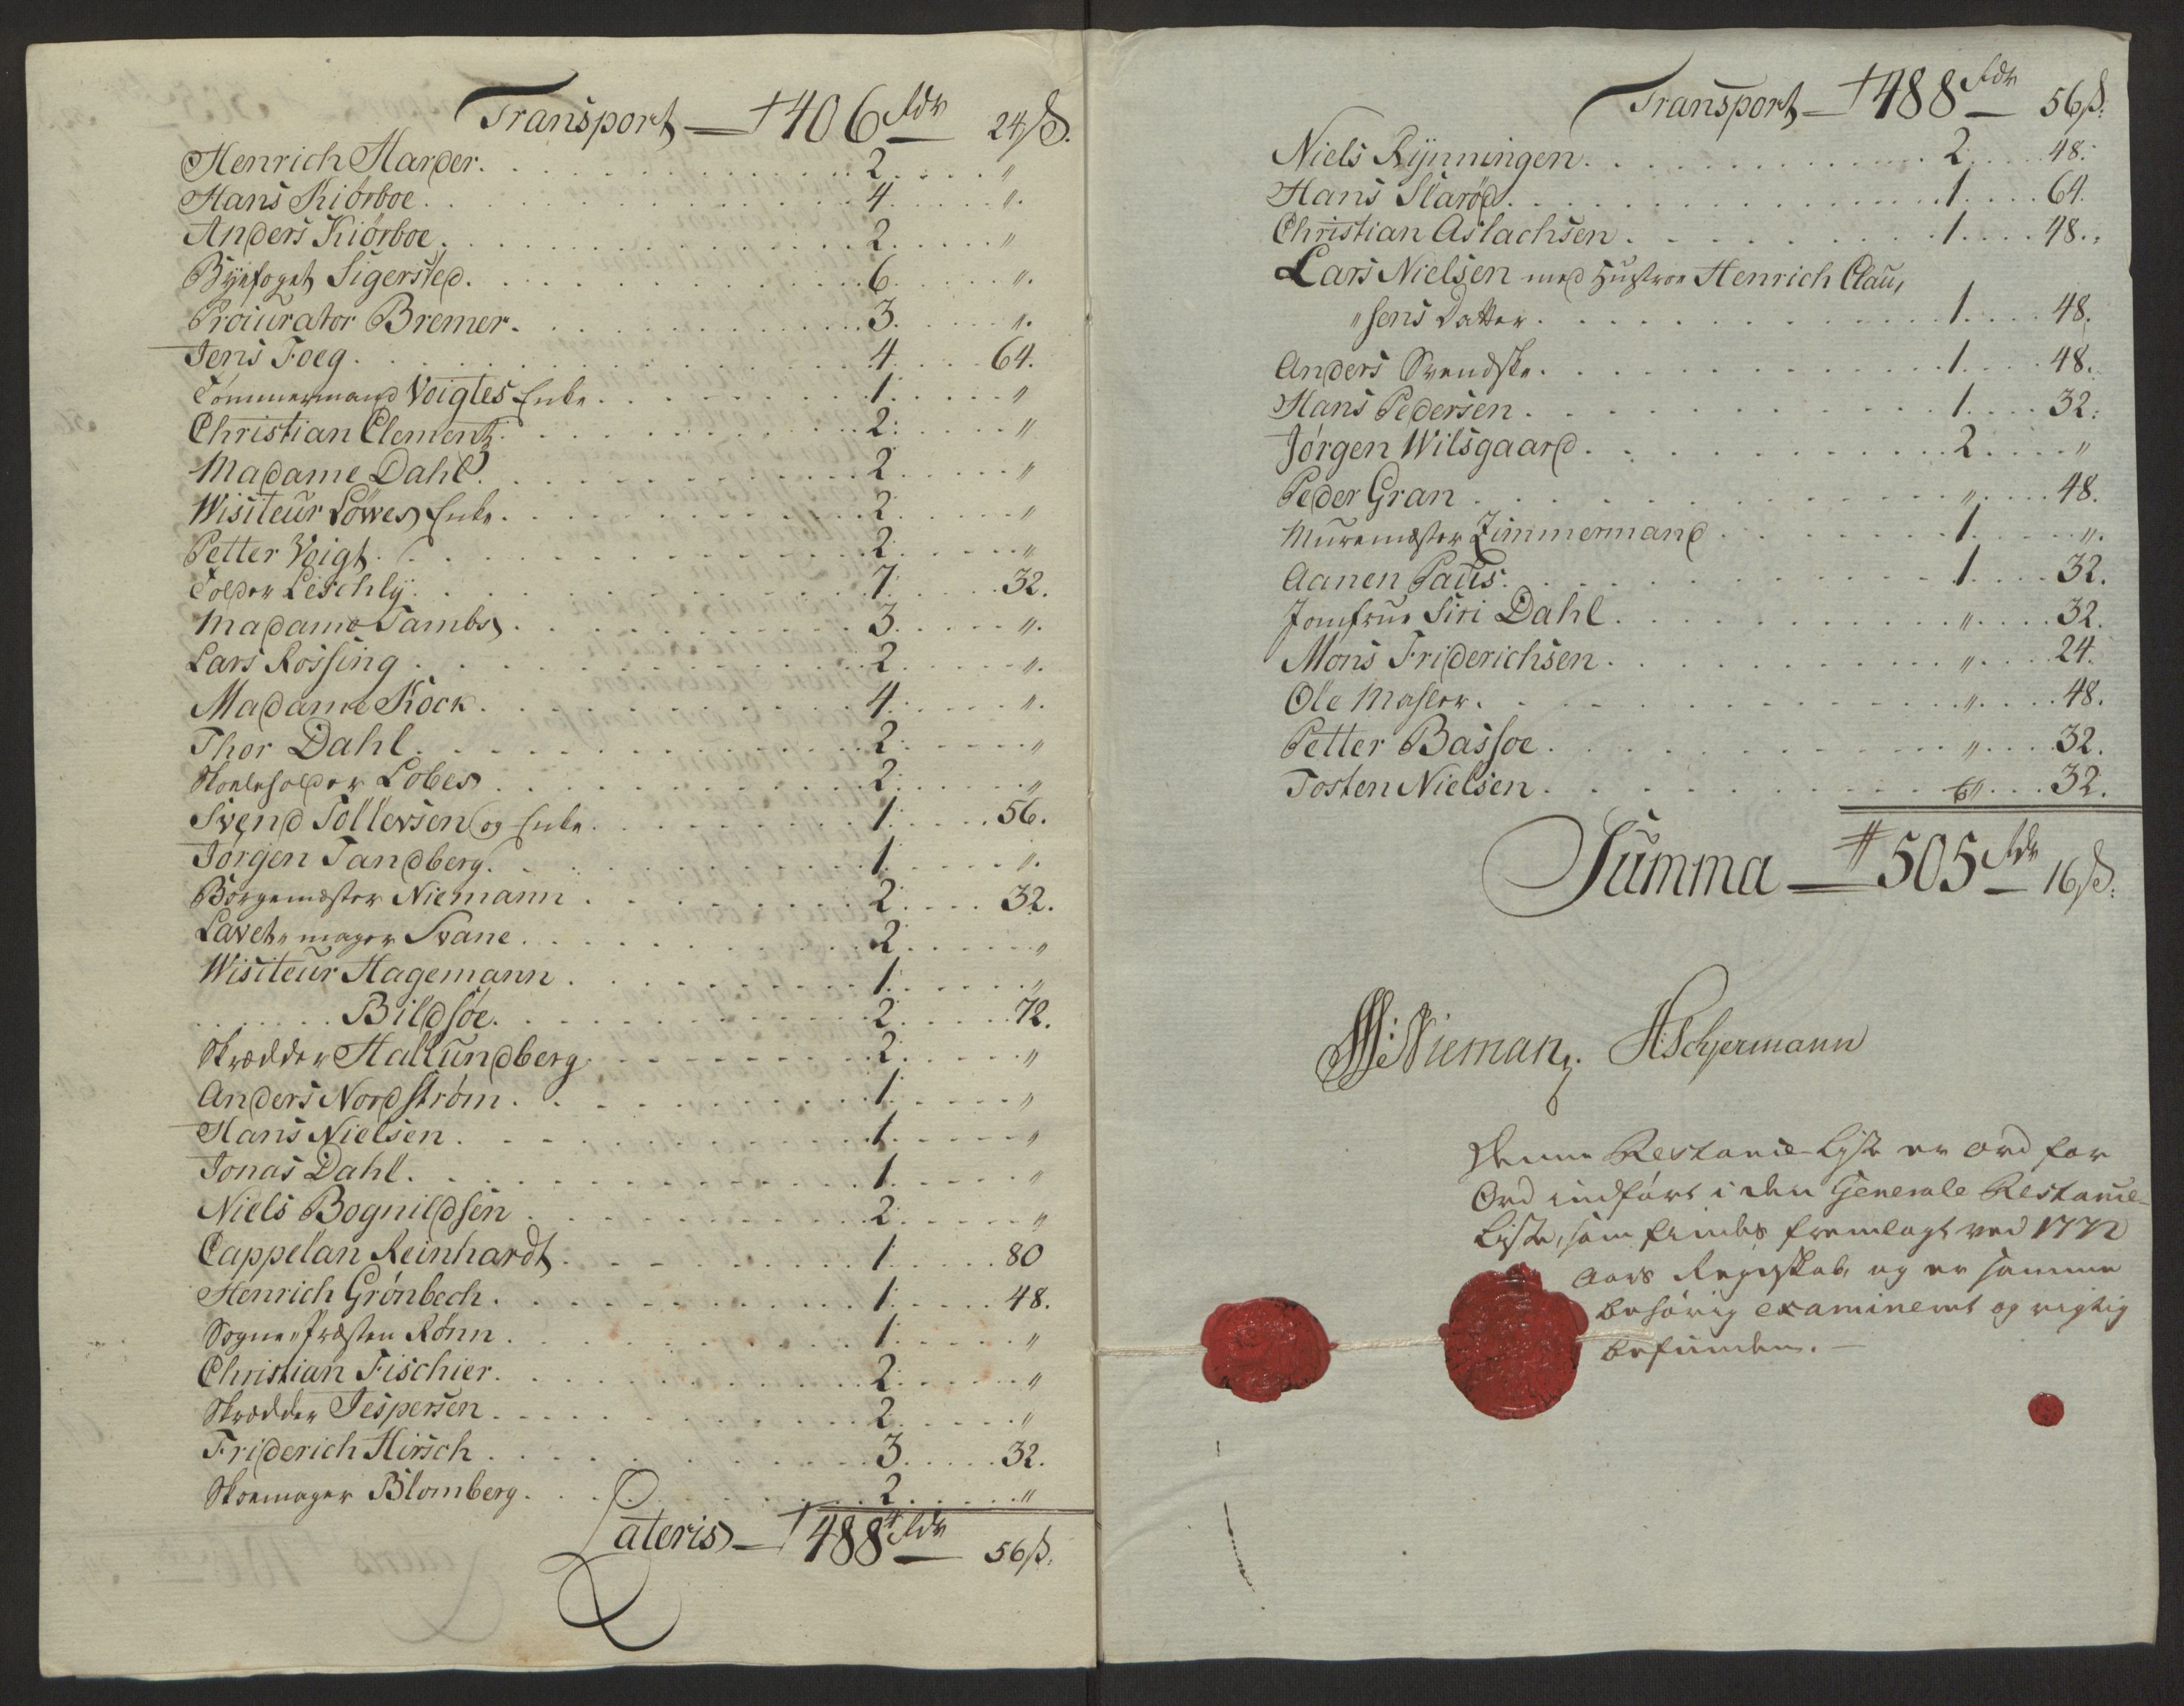 Transport — 406 rdr 24 ß.
Henrich Harder . . . 2 . . . "
Hans Kiørboe . . . 4 . . . "
Anders Kiørboe . . . 2 . . . "
Byefoget Sigersted . . . 6 . . . "
Procurator Bremer . . . 3 . . . "
Jens Foeg . . . 4 . . . 64.
Tømmermand Voigtes Enke . . . 1 . . . "
Christian Clementz . . . 2 . . . "
Madame Dahl . . . 2 . . . "
Wisiteur Löwes Enke . . . 2 . . . "
Petter Voigt . . . 2 . . . "
Tolder Leschly . . . 7 . . . 32.
Madame Tambs . . . 3 . . . "
Lars Rossing . . . 2 . . . "
Madame Kock . . . 4 . . . "
Thor Dahl . . . 2 . . . "
Skoeleholder Lobes . . . 2 . . . "
Svend Tollevsen og Enke . . . 1 . . . 56.
Jørgen Tandberg . . . 1 . . . "
Borgemester Niemann . . . 2 . . . 32.
Lavet-mager Svane . . . 2 . . . "
Wisiteur Hagemann . . . 1 . . . "
. . . Bildsøe . . . 2 . . . 72.
Skrædder Hallundberg . . . 2 . . . "
Anders Nordstrøm . . . 1 . . . "
Hans Nielsen . . . 1 . . . "
Jonas Dahl . . . 1 . . . "
Niels Bognildsen . . . 2 . . . "
Cappelan Reinhardt . . . 1 . . . 80
Henrich Grønbech . . . 1 . . . 48.
Sogne-Præsten Rönn . . . 1 . . . "
Christian Fischier . . . 2 . . . "
Skrædder Jespersen . . . 2 . . . "
Friderich Hirsch . . . 3 . . . 32.
Skoemager Blomberg . . . 2 . . . "
Lateris — 488 rdr 56 ß.
Transport — 488 rdr 56 ß.
Niels Rynningen . . . 2 . . . 48.
Hans Starød . . . 1 . . . 64.
Christian Aslachsen . . . 1 . . . 48.
Lars Nielsen med Hustroe Henrich Clau,
"sens Datter . . . 1 . . . 48.
Anders Svendske . . . 1 . . . 48.
Hans Pedersen . . . 1 . . . 32.
Jørgen Wilsgaard . . . 2 . . . "
Peder Gran . . . " . . . 48.
Muremester Zimmermand . . . 1 . . . "
Aanen Paus . . . 1 . . . 32.
Jomfrue Siri Dahl . . . " . . . 32.
Mons Friderichsen . . . " . . . 24.
Ole Mahler . . . " . . . 48.
Petter Bassoe . . . " . . . 32.
Tosten Nielsen . . . " . . . 32.
Summa — 505 rdr 16 ß.
Niemann. Schjermann
Denne Restance-Liste er ord for
Ord indført i den Generale Restance-
Liste, som findes fremlagt ved 1772
Aars Regnskab, og er samme
behørig examineret og rigtig
befunden. —